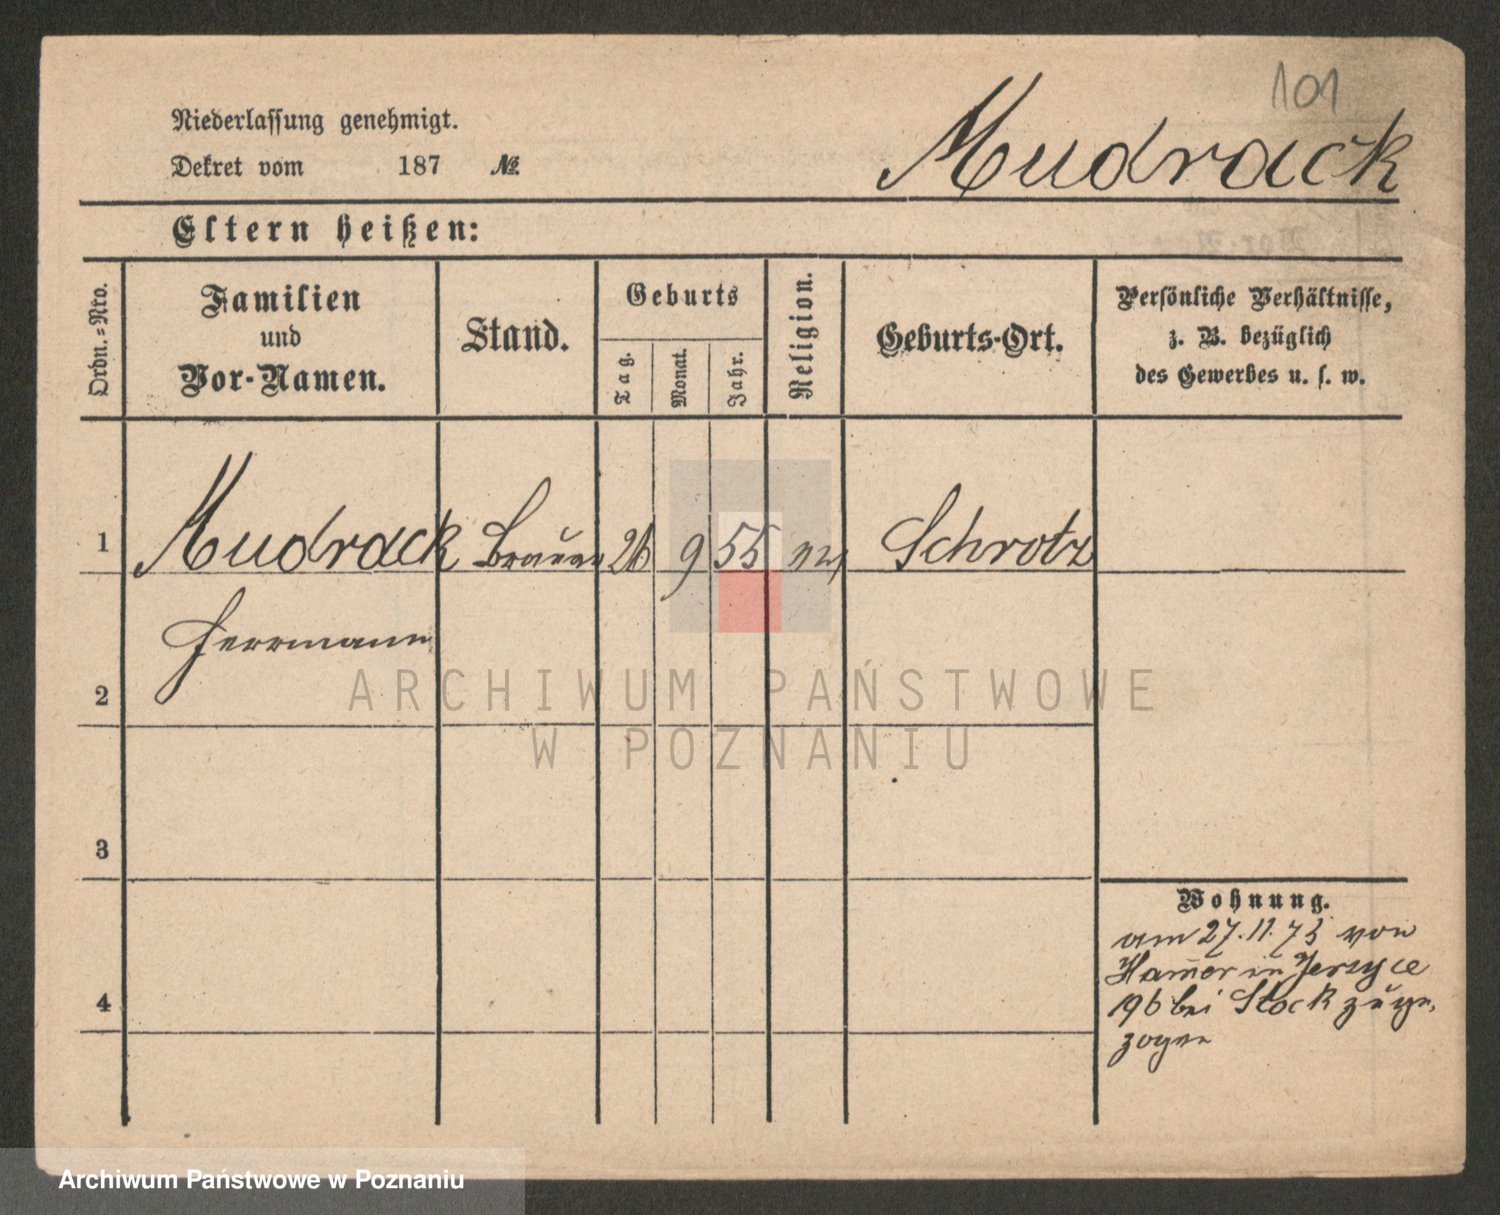 101
Niederlassung genehmigt.
Mudrack
Dekret vom 187 №
Eltern heißen:
Ordn.-Nro.
Familien
und
Vor-Namen.
Stand.
Geburts
Tag.
Monat.
Jahr.
Religion.
Geburts-Ort.
Persönliche Verhältnisse,
z. B. bezüglich
des Gewerbes u. s. w.
1 Mudrack Brauer 26 9 55 Schrotz
Herrmann
2
ARCHIWUM PAŃSTWOWE
W POZNANIU
3
Wohnung.
am 27.11.73 von
Hamer in Jerzyce
4
196 bei Stock zuge-
zogen
Archiwum Państwowe w Poznaniu